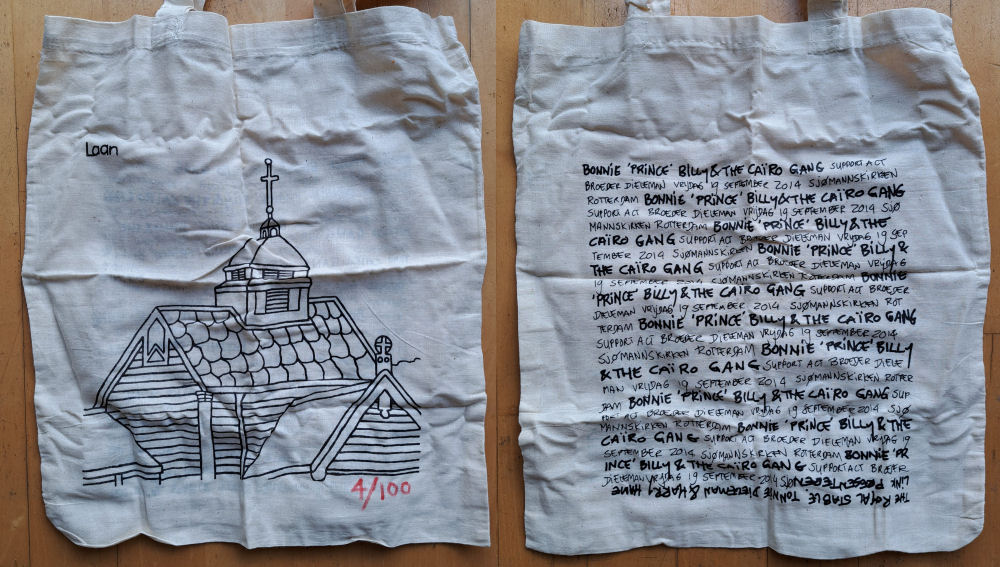 Laan
4/100
BONNIE 'PRINCE' BILLY & THE CAÏRO GANG SUPPORT ACT
BROEDER DIELEMAN VRIJDAG 19 SEPTEMBER 2014 SJØMANNSKIRKEN
ROTTERDAM BONNIE 'PRINCE' BILLY & THE CAÏRO GANG
SUPPORT ACT BROEDER DIELEMAN VRIJDAG 19 SEPTEMBER 2014 SJØ
MANNSKIRKEN ROTTERDAM BONNIE 'PRINCE' BILLY & THE
CAÏRO GANG SUPPORT ACT BROEDER DIELEMAN VRIJDAG 19 SEP
TEMBER 2014 SJØMANNSKIRKEN BONNIE 'PRINCE' BILLY &
THE CAÏRO GANG SUPPORT ACT BROEDER DIELEMAN VRIJDAG
19 SEPTEMBER 2014 SJØMANNSKIRKEN ROTTERDAM BONNIE
'PRINCE' BILLY & THE CAÏRO GANG SUPPORT ACT BROEDER
DIELEMAN VRIJDAG 19 SEPTEMBER 2014 SJØMANNSKIRKEN ROT
TERDAM BONNIE 'PRINCE' BILLY & THE CAÏRO GANG
SUPPORT ACT BROEDER DIELEMAN VRIJDAG 19 SEPTEMBER 2014
SJØMANNSKIRKEN ROTTERDAM BONNIE 'PRINCE' BILLY
& THE CAÏRO GANG SUPPORT ACT BROEDER DIELE
MAN VRIJDAG 19 SEPTEMBER 2014 SJØMANNSKIRKEN ROTTER
DAM BONNIE 'PRINCE' BILLY & THE CAÏRO GANG SUP
PORT ACT BROEDER DIELEMAN VRIJDAG 19 SEPTEMBER 2014 SJØ
MANNSKIRKEN ROTTERDAM BONNIE 'PRINCE' BILLY & THE
CAÏRO GANG SUPPORT ACT BROEDER DIELEMAN VRIJDAG 19
SEPTEMBER 2014 SJØMANNSKIRKEN ROTTERDAM BONNIE 'PR
INCE' BILLY & THE CAÏRO GANG SUPPORT ACT BROEDER
DIELEMAN VRIJDAG 19 SEPTEMBER 2014 SJØ
THE ROYAL STABLE, TONNIE DIELEMAN & HARRY HANE
LINK PRESENTEGEN